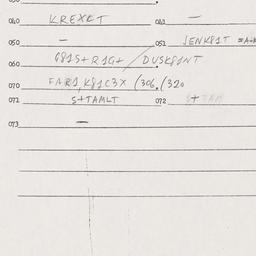 040 KREXET 043 —
050 — 051 JENK81T = A+K
060 681S+R1G+ / DUSK81NT
070 FAR1, K81C3X (306, (320
071 S+TAMLT 072 S+TAM
073 —